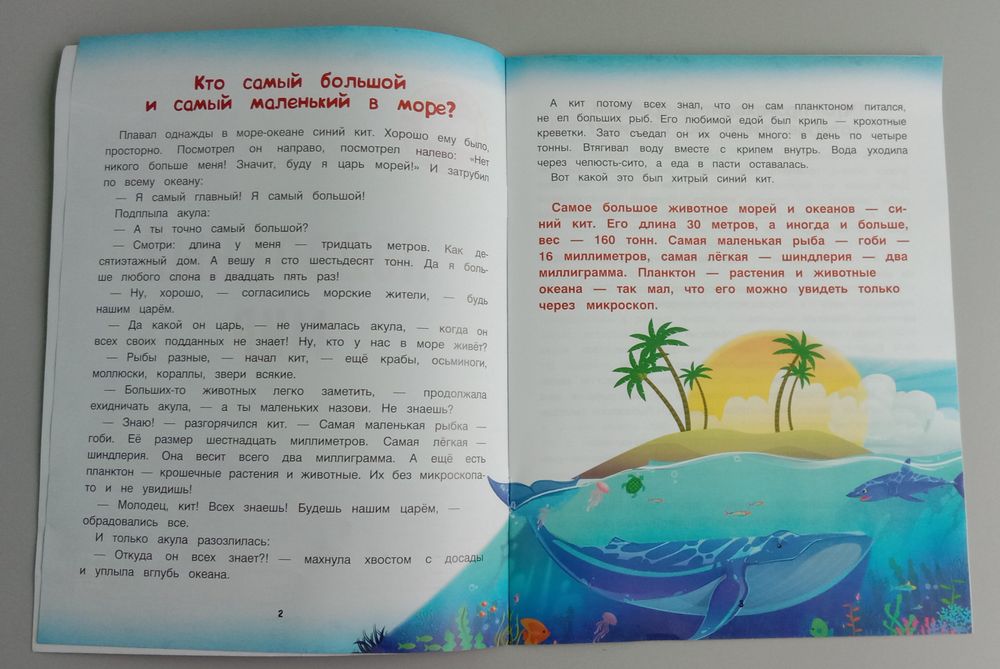 Кто самый большой
и самый маленький в море?
Плавал однажды в море-океане синий кит. Хорошо ему было,
просторно. Посмотрел он направо, посмотрел налево: «Нет
никого больше меня! Значит, буду я царь морей!» И затрубил
по всему океану:
— Я самый главный! Я самый большой!
Подплыла акула:
— А ты точно самый большой?
— Смотри: длина у меня — тридцать метров. Как де-
сятиэтажный дом. А вешу я сто шестьдесят тонн. Да я боль-
ше любого слона в двадцать пять раз!
— Ну, хорошо, — согласились морские жители, — будь
нашим царём.
— Да какой он царь, — не унималась акула, — когда он
всех своих подданных не знает! Ну, кто у нас в море живёт?
— Рыбы разные, — начал кит, — ещё крабы, осьминоги,
моллюски, кораллы, звери всякие.
— Больших-то животных легко заметить, — продолжала
ехидничать акула, — а ты маленьких назови. Не знаешь?
— Знаю! — разгорячился кит. — Самая маленькая рыбка —
гоби. Её размер шестнадцать миллиметров. Самая лёгкая —
шиндлерия. Она весит всего два миллиграмма. А ещё есть
планктон — крошечные растения и животные. Их без микроскопа-
то и не увидишь!
— Молодец, кит! Всех знаешь! Будешь нашим царём, —
обрадовались все.
И только акула разозлилась:
— Откуда он всех знает?! — махнула хвостом с досады
и уплыла вглубь океана.
2
А кит потому всех знал, что он сам планктоном питался,
не ел больших рыб. Его любимой едой был криль — крохотные
креветки. Зато съедал он их очень много: в день по четыре
тонны. Втягивал воду вместе с крилем внутрь. Вода уходила
через челюсть-сито, а еда в пасти оставалась.
Вот какой это был хитрый синий кит.
Самое большое животное морей и океанов — си-
ний кит. Его длина 30 метров, а иногда и больше,
вес — 160 тонн. Самая маленькая рыба — гоби —
16 миллиметров, самая лёгкая — шиндлерия — два
миллиграмма. Планктон — растения и животные
океана — так мал, что его можно увидеть только
через микроскоп.
3